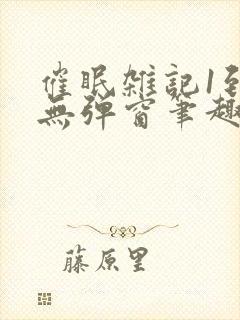 催眠雜記1到
無彈窗筆趣
藤原里